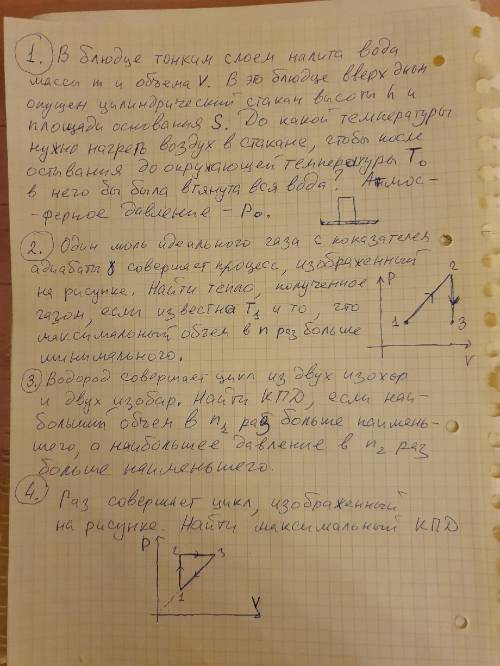 1. В блюдце тонким слоем налита вода
массы m и объема V. В это блюдце вверх дном
опущен цилиндрический стакан высоты h и
площади основания S. До какой температуры
нужно нагреть воздух в стакане, чтобы после
остывания до окружающей температуры T₀
в него бы была втянута вся вода? Атмос-
-ферное давление - P₀.
2. Один моль идеального газа с показателем
адиабаты γ совершает процесс, изображенный
на рисунке. Найти тепло, полученное
газом, если известна T₁ и то, что
максимальный объем в n раз больше
минимального.
P 2
1 3
V
3. Водород совершает цикл из двух изохор
и двух изобар. Найти КПД, если наи-
больший объем в n₁ раз больше наимень-
шего, а наибольшее давление в n₂ раз
больше наименьшего.
4. Газ совершает цикл, изображенный
на рисунке. Найти максимальный КПД
P 2 3
1
V